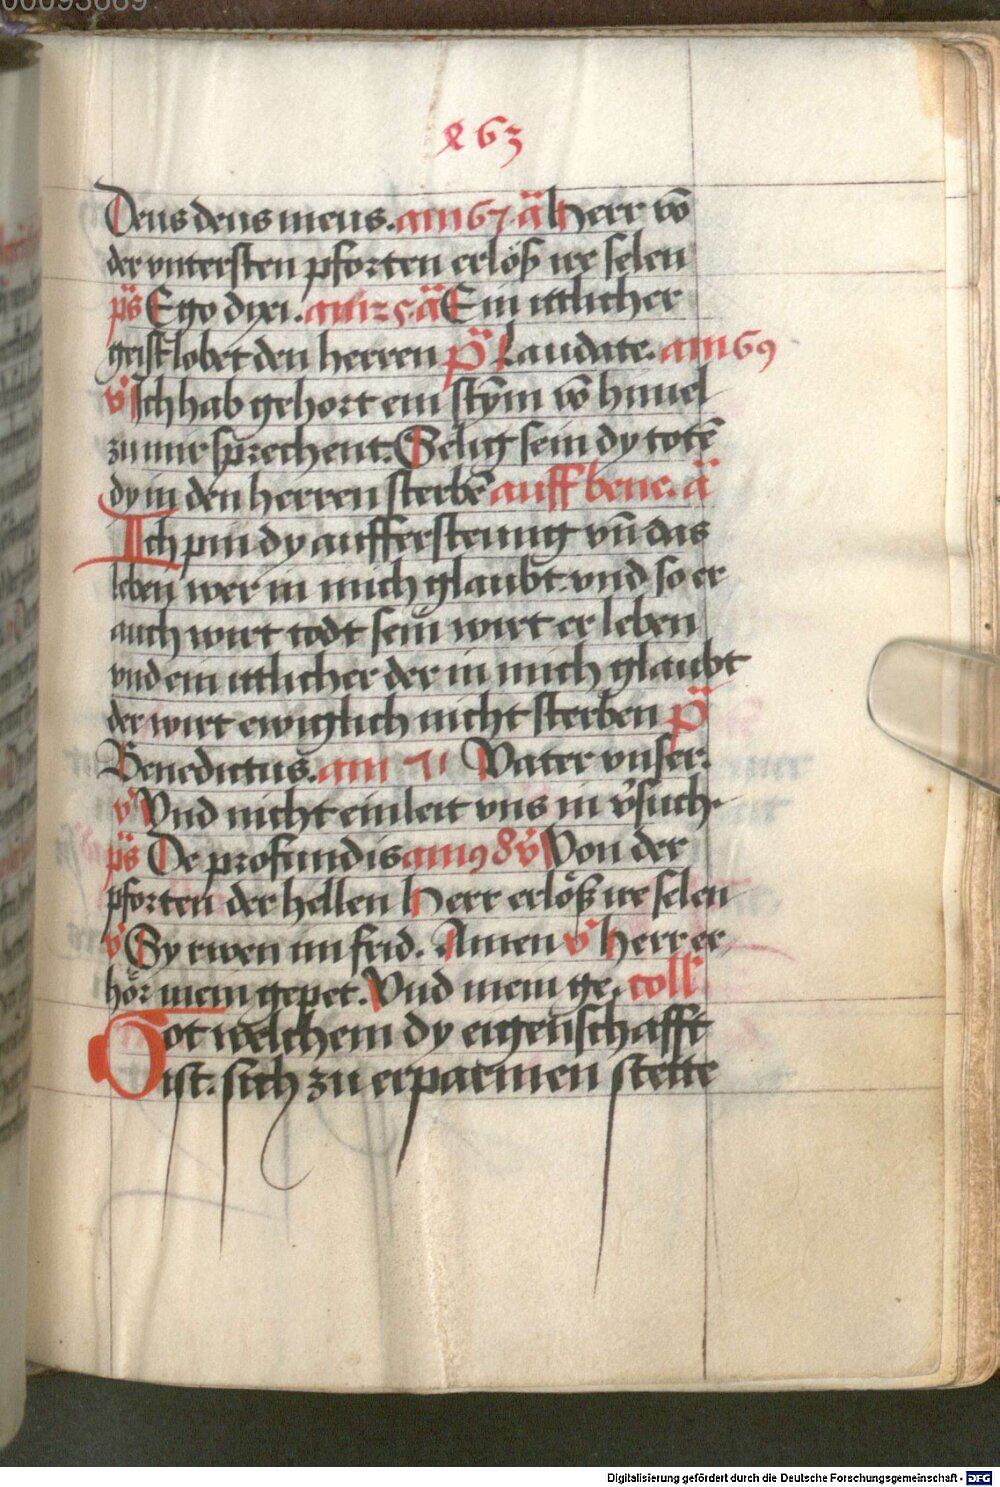 00093669
263
Deus deus meus. am 67 ā Herr võ
der vntersten pforten erlöß ire selen
ps Ego dixi. am 125 ā Ein itlicher
geist lobet den herren p̄s Laudate. am 69
v̄ Ich hab gehort ein stȳm võ himel
zu mir sprechent. Selig sein dy totē
dy in den herren sterbē auff bene. ā
Ich pin dy auffersteung vn̄ das
leben wer in mich glaubt vnd so er
auch wirt todt sein wirt er leben
vnd ein itlicher der in mich glaubt
der wirt ewiglich nicht sterben p̄s
Benedictus. am 71 Vater vnser.
v̄ Vnd nicht einleit vns in v̄such.
ps De profundis am 98 v̄ Von der
pforten der hellen Herr erlöß ire selen
v̄ Sy rwen im frid. Amen v̄ Herr er
hör mein gepet. Vnd mein ge. coll
Got welchem dy eigenschafft
ist. sich zu erparmen stette
Digitalisierung gefördert durch die Deutsche Forschungsgemeinschaft - DFG